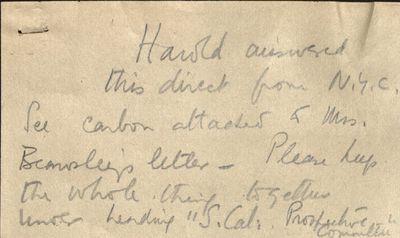 Harold answered
this direct from N.Y.C.
See carbon attached to Mrs.
letter – Please keep
the whole thing together
under heading "S. Cal.
Committee"